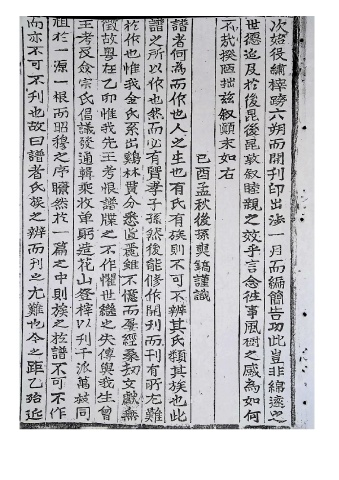 次始役繡梓跨六朔而開刊印出洊一月而編簡告功此豈非綿遠之
世德迨及於後昆後昆敦敘睦親之效乎言念往事風樹之感為如何
不敢揆陋拙玆叙顛末如右
己酉孟秋後孫奭鎬謹識
譜者何為而作也人之生也有氏有族則不可不辨其氏類其族也此
譜之所以作也然而必有賢孝子孫然後能修作開刊而刊有所尤難
於作也惟我金氏系出鷄林貫分悉直麗雖不億而屢經桑刧文獻無
徵故粤在乙卯惟我先王考恨譜牒之不作懼世繼之失傳與我生曾
王考及僉宗氏倡議發通輯衆收單躬造花山登梓以刊千派萬枝同
祖於一源一根而昭穆之序瞭然於一篇之中則族之於譜不可不作
而亦不可不刊也故曰譜者氏族之辨而刊之尤難也今之距乙殆近